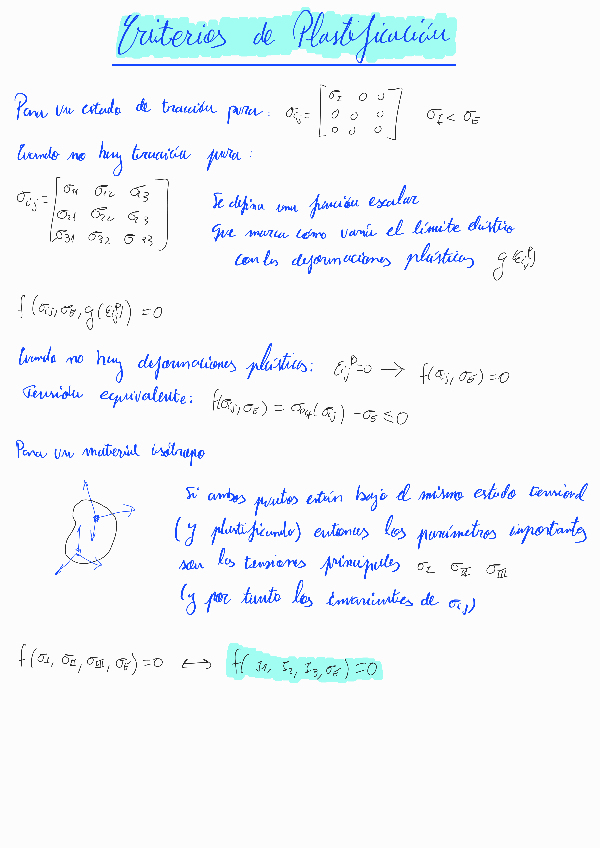 Criterios de Plastificación
Para un estado de tracción pura: σij = [σI 0 0; 0 0 0; 0 0 0] σI < σE
Cuando no hay tracción pura:
σij = [σ11 σ12 σ13; σ21 σ22 σ23; σ31 σ32 σ33]
Se define una función escalar
que marca cómo varía el límite elástico
con las deformaciones plásticas g(εij^p)
f(σij, σE, g(εij^p)) = 0
Cuando no hay deformaciones plásticas: εij^p = 0 → f(σij, σE) = 0
Tensión equivalente: f(σij, σE) = σeq(σij) - σE ≤ 0
Para un material isótropo
Si ambos puntos están bajo el mismo estado tensional
(y plastificando) entonces los parámetros importantes
son las tensiones principales σI σII σIII
(y por tanto los invariantes de σij)
f(σI, σII, σIII, σE) = 0 ↔ f(I1, I2, I3, σE) = 0